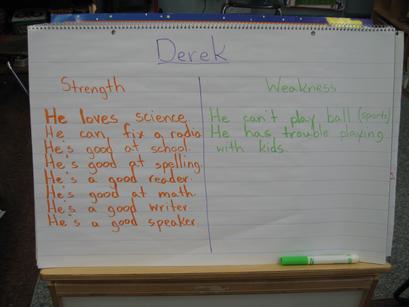 Derek
Strength
Weakness
He loves science
He can fix a radio
He's good at school.
He's good at spelling
He's a good reader.
He's good at math
He's a good writer.
He's a good speaker.
He can't play ball (sports)
He has trouble playing
with kids.